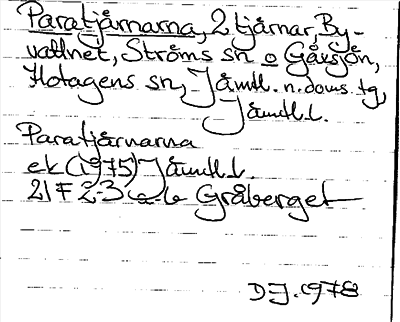 Paratjårnarna, 2 tjårnar, By-
vattnet, Ströms sn o Gåxsjön,
Hotagens sn, Jämtl. n. doms. tg,
Jämtl. l.
Paratjårnarna
ek (1975) Jämtl. l.
21F 2-3 a-b Gråberget
D J. 1978